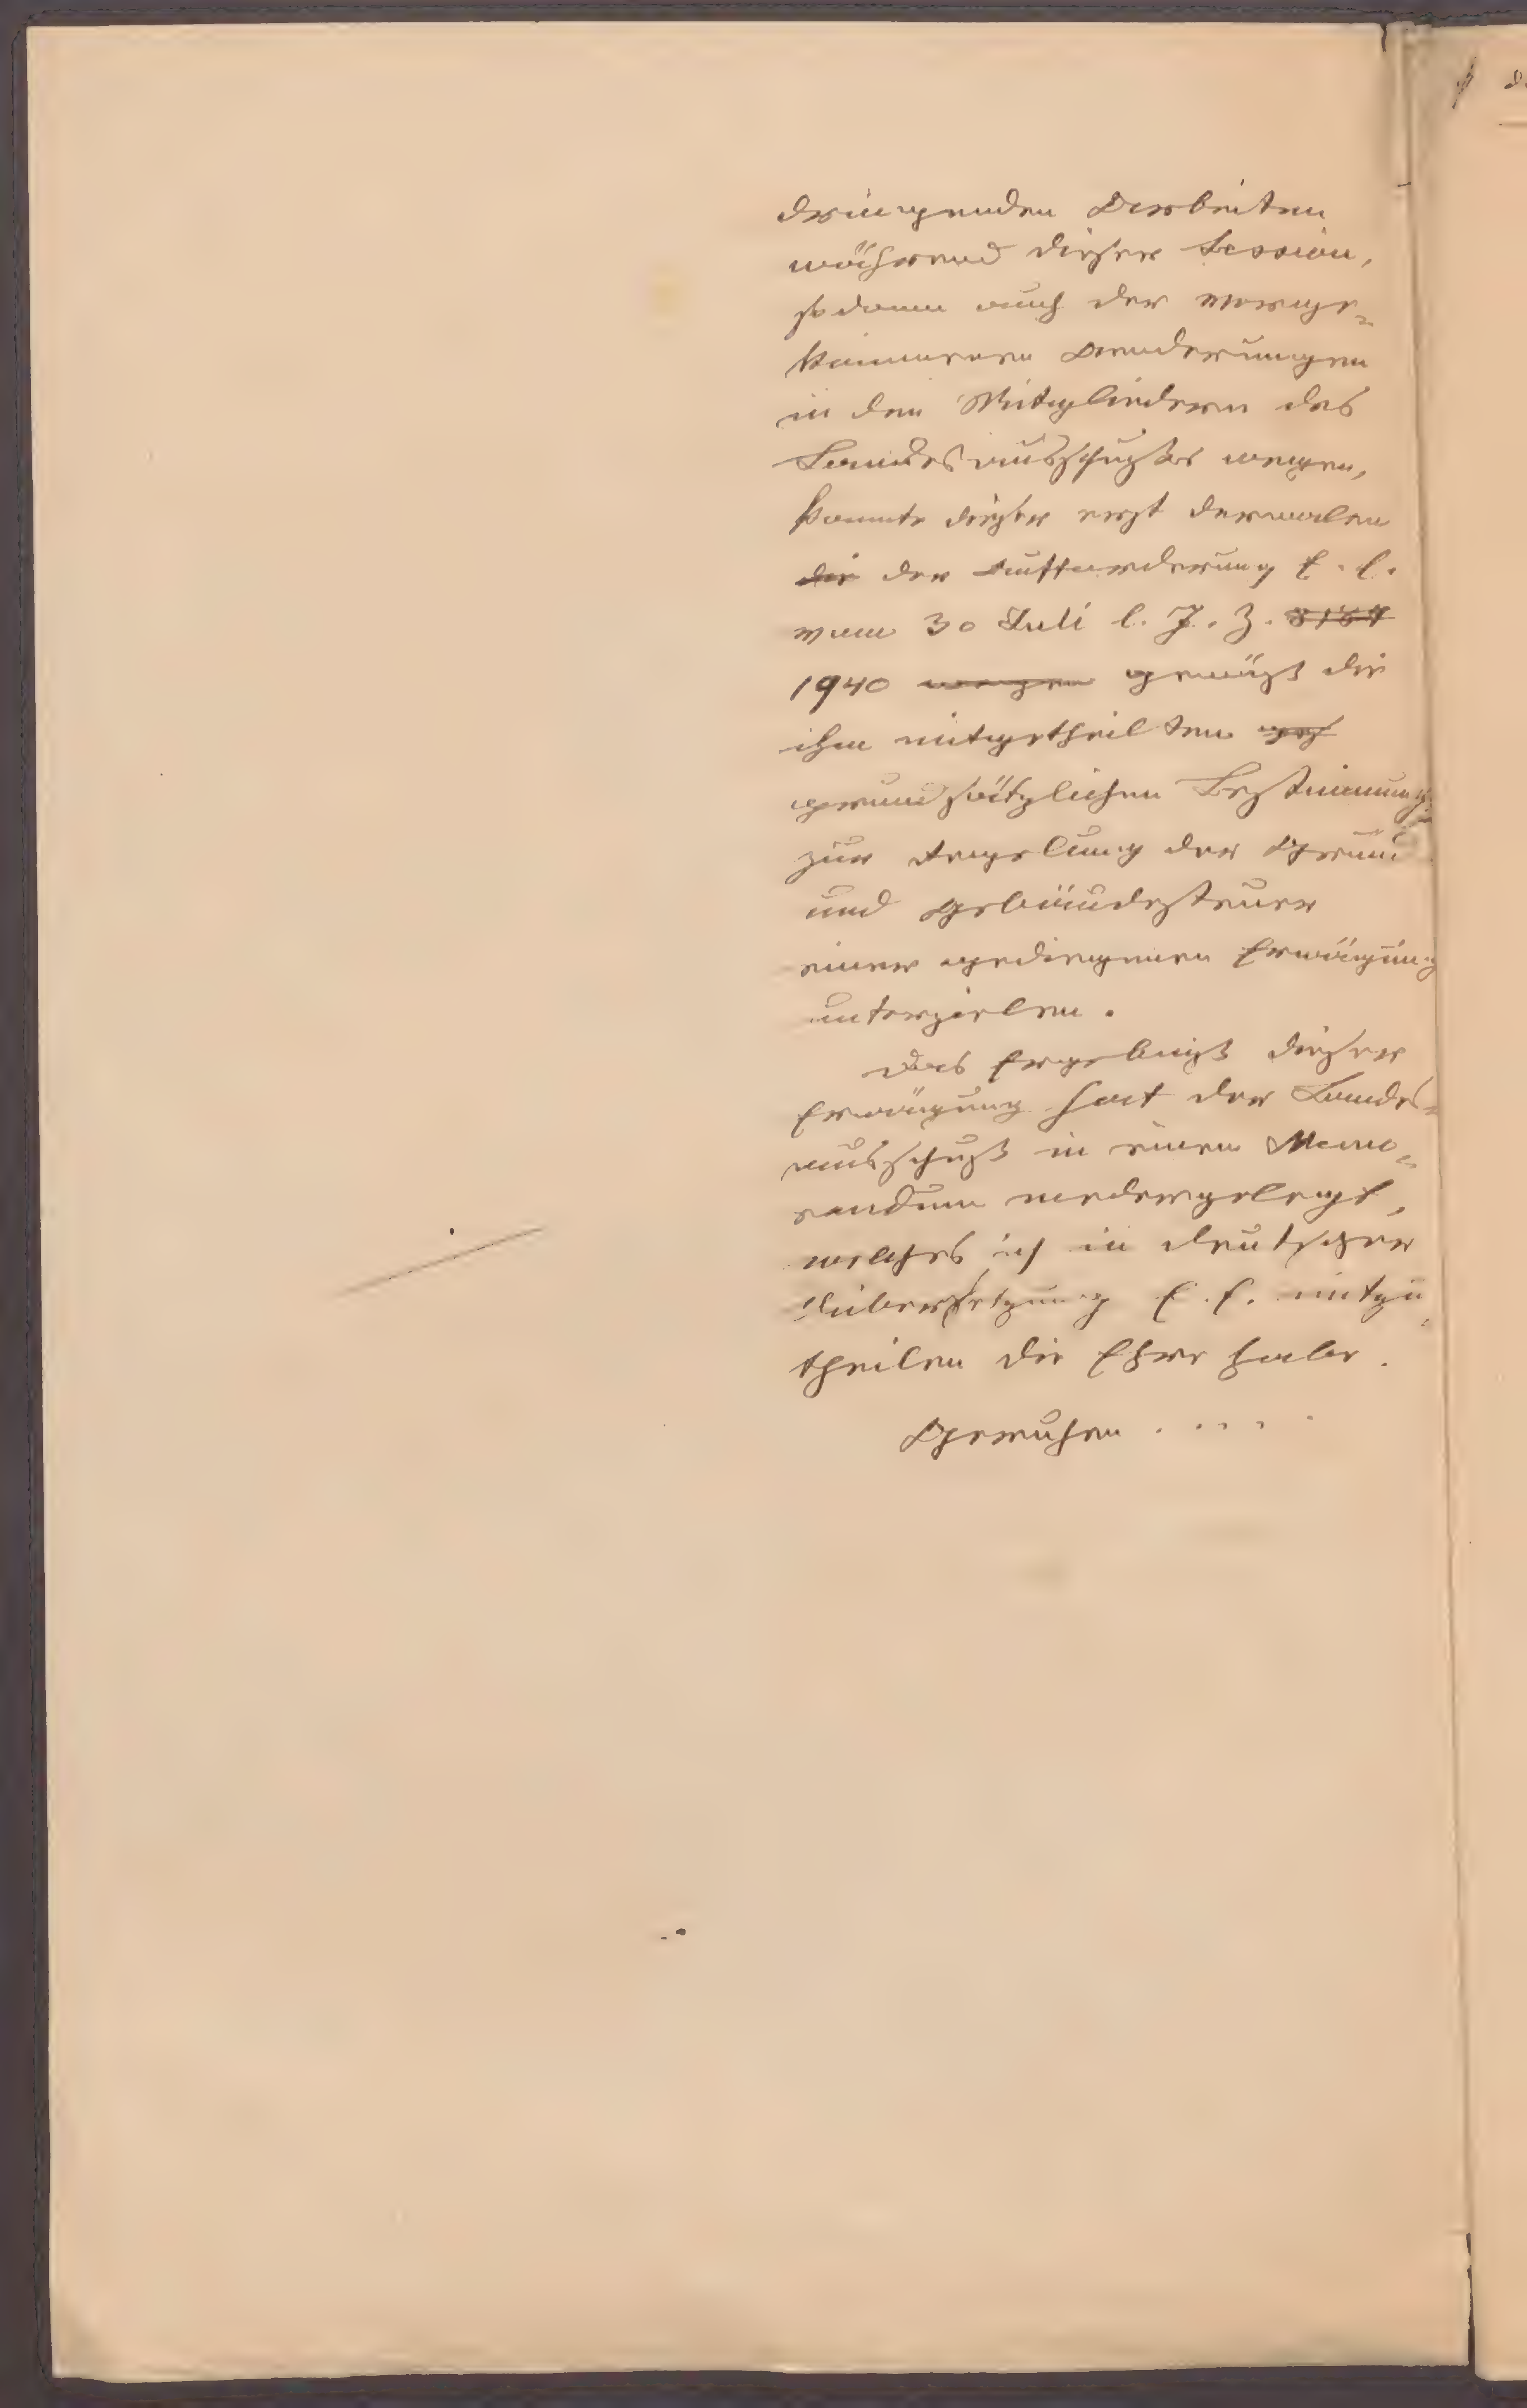 dringenden Arbeiten
während dieser Session,
sodann auch der vorge-
kommenen Aenderungen
in den Mitgliedern des
Landesausschußes wegen,
konnte dieser erst dermalen
die der Aufforderung E. E.
vom 30 Juli l. J. Z. 3164
1940 wegen gemäß die
ihm mitgetheilten
grundsätzlichen Bestimmungen
zur Regelung der Grund
und Gebäudesteuer
einer gediegenen Erwägung
unterziehen.
Das Ergebniß dieser
Erwägung hat der Landes-
ausschuß in einem Memo-
randum niedergelegt,
welches ich in deutscher
Uibersetzung E. E. mitzu-
theilen die Ehre habe.
Geruhen . . . .